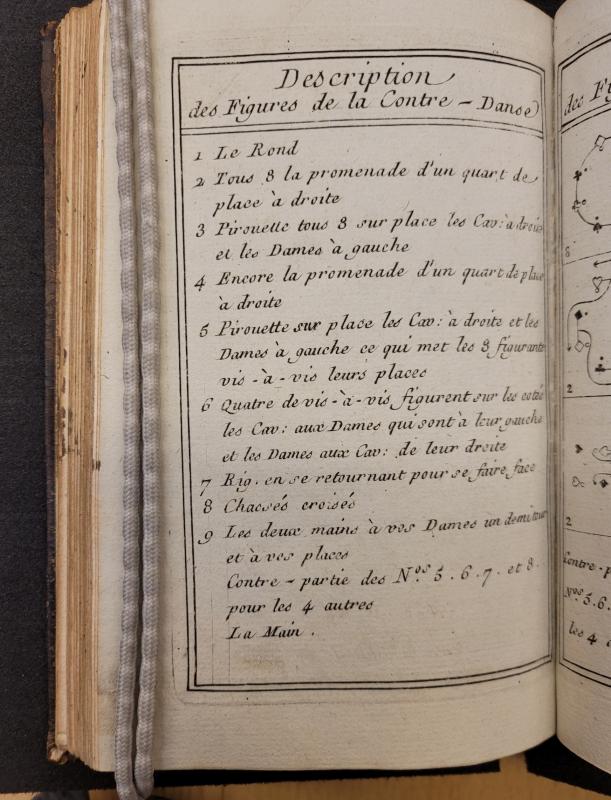 Description
des Figures de la Contre - Danse
1 Le Rond
2 Tous 8 la promenade d'un quart de
place à droite
3 Pirouette tous 8 sur place les Cav: à droite
et les Dames à gauche
4 Encore la promenade d'un quart de place
à droite
5 Pirouette sur place les Cav: à droite et les
Dames à gauche ce qui met les 8 figurants
vis - à - vis leurs places
6 Quatre de vis - à - vis figurent sur les cotés
les Cav: aux Dames qui sont à leur gauche
et les Dames aux Cav: de leur droite
7 Rig. en se retournant pour se faire face
8 Chassés croisés
9 Les deux mains à vos Dames un demi tour
et à vos places
Contre - partie des Nos 5 . 6 . 7 . et 8 .
pour les 4 autres
La Main .
des Fi
8
2
2
Contre - p
Nos 5. 6.
les 4 a